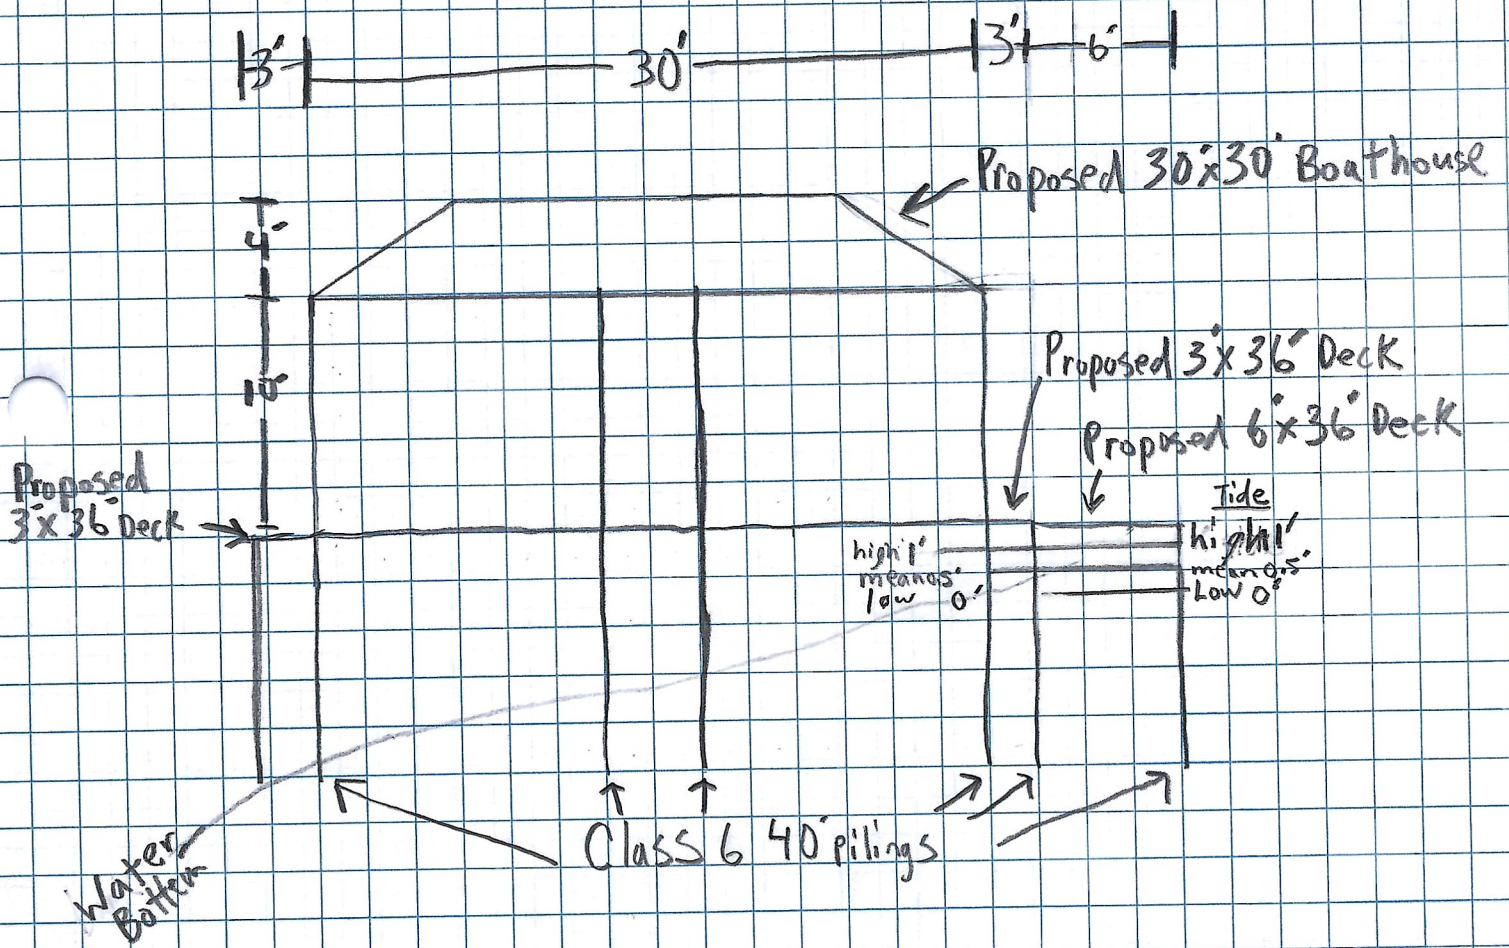 3' 30' 3' 6'
Proposed 30'x30' Boathouse
4'
10'
Proposed 3'x36' Deck
Proposed 6'x36' Deck
Proposed
3'x36' Deck
Tide
high 1' high 1'
mean 0.5' mean 0.5'
low 0' Low 0'
Class 6 40' pilings
Water
Bottem